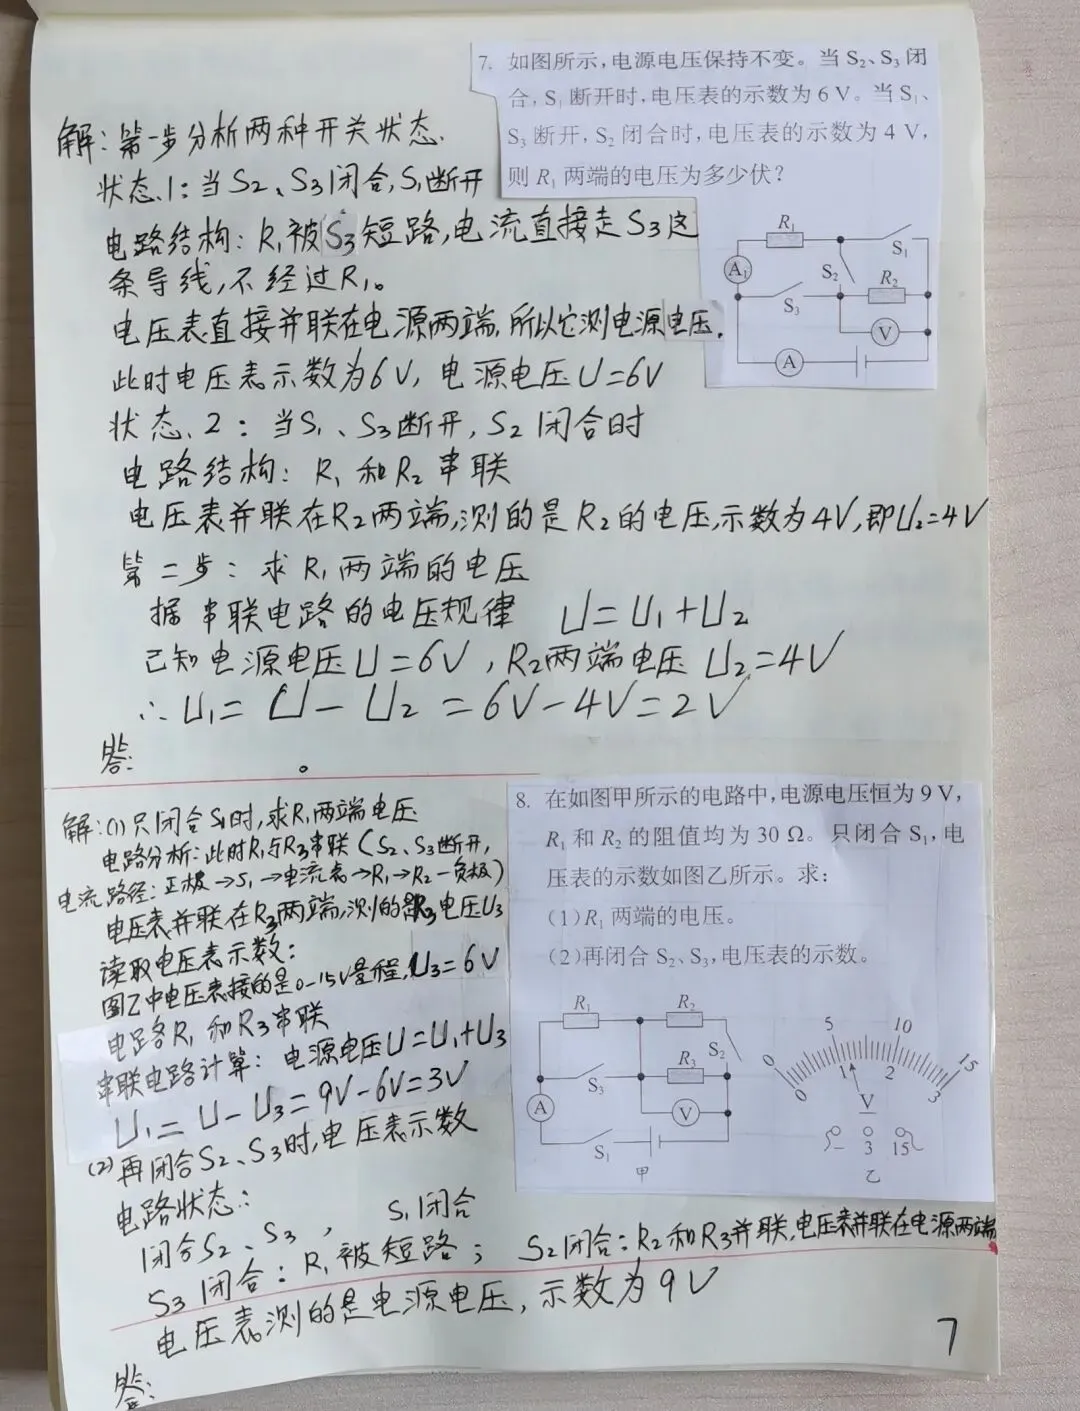 7. 如图所示,电源电压保持不变。当 S₂、S₃ 闭
合,S₁ 断开时,电压表的示数为 6 V。当 S₁、
S₃ 断开,S₂ 闭合时,电压表的示数为 4 V,
则 R₁ 两端的电压为多少伏?
R₁
S₁
A₁
S₂
R₂
S₃
V
A
解:第一步分析两种开关状态.
状态.1:当S₂、S₃闭合,S₁断开
电路结构:R₁被S₃短路,电流直接走S₃这
条导线,不经过R₁。
电压表直接并联在电源两端,所以它测电源电压.
此时电压表示数为6V,电源电压U=6V
状态.2:当S₁、S₃断开,S₂闭合时
电路结构:R₁和R₂串联
电压表并联在R₂两端,测的是R₂的电压,示数为4V,即U₂=4V
第二步:求R₁两端的电压
据串联电路的电压规律 U=U₁+U₂
已知电源电压U=6V,R₂两端电压U₂=4V
∴U₁=U-U₂=6V-4V=2V
答: 。
8. 在如图甲所示的电路中,电源电压恒为 9 V,
R₁ 和 R₂ 的阻值均为 30 Ω。只闭合 S₁,电
压表的示数如图乙所示。求:
(1)R₁ 两端的电压。
(2)再闭合 S₂、S₃,电压表的示数。
R₁
R₂
S₂
R₃
S₃
V
A
S₁
甲
5 10
0 15
0 1 2 3
V
- 3 15
乙
解:(1)只闭合S₁时,求R₁两端电压
电路分析:此时R₁与R₃串联(S₂、S₃断开,
电流路径:正极→S₁→电流表→R₁→R₂-负极)
电压表并联在R₃两端,测的是R₃电压U₃
读取电压表示数:
图乙中电压表接的是0-15V量程,U₃=6V
电路R₁和R₃串联
串联电路计算:电源电压U=U₁+U₃
U₁=U-U₃=9V-6V=3V
(2)再闭合S₂、S₃时,电压表示数
电路状态:
闭合S₂、S₃, S₁闭合
S₃闭合:R₁被短路; S₂闭合:R₂和R₃并联,电压表并联在电源两端
电压表测的是电源电压,示数为9V
答:
7